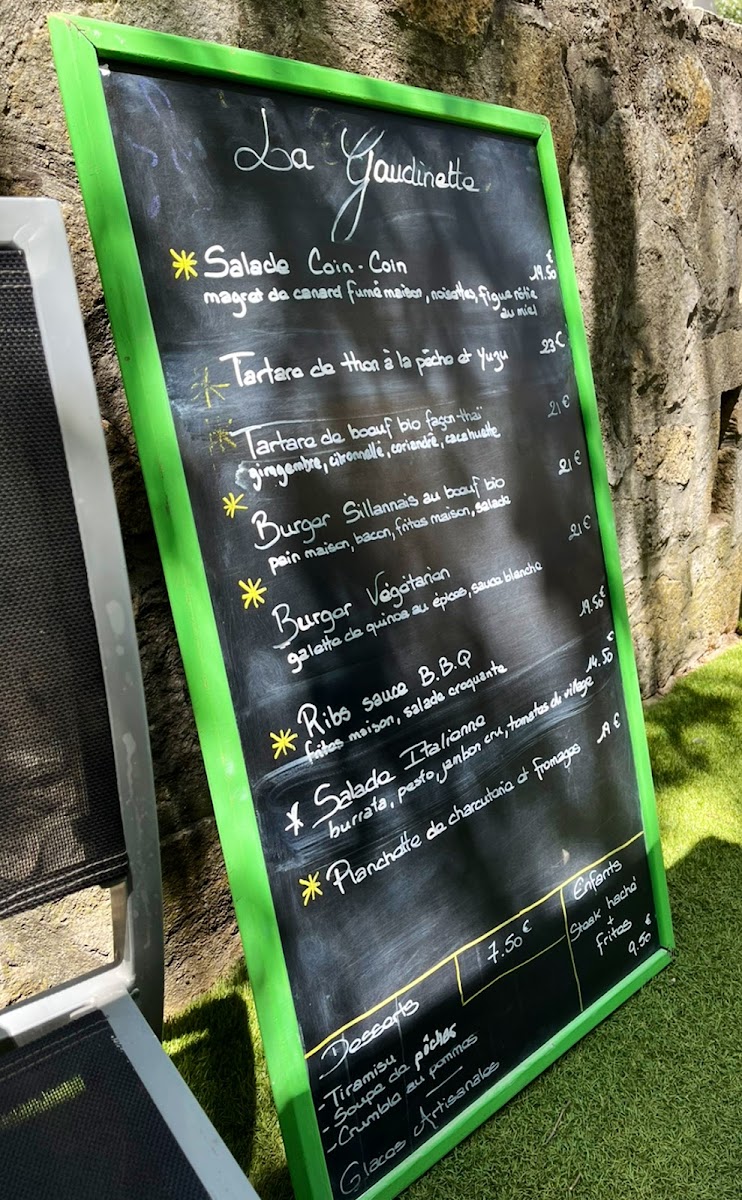 La Gaudinette
Salade Coin-Coin 19.50€
magret de canard fumé maison, noisettes, figue rôtie
au miel
Tartare de thon à la pêche et Yuzu 23€
Tartare de boeuf bio façon thaï 21€
gimgembre, citronnelle, coriandre, cacahuette
Burger Sillannais au boeuf bio 21€
pain maison, bacon, frites maison, salade
Burger Végétarien 21€
galette de quinoa au épices, sauce blanche
Ribs sauce B.B.Q 19.50€
frites maison, salade croquante
Salade Italienne 14.50€
burrata, pesto, jambon cru, tomates du village
Planchette de charcuterie et fromages 19€
Desserts 7.50€
- Tiramisu
- Soupe de pêches
- Crumble au pommes
Glaces Artisanales
Enfants
Steak haché
+
Frites
9.50€